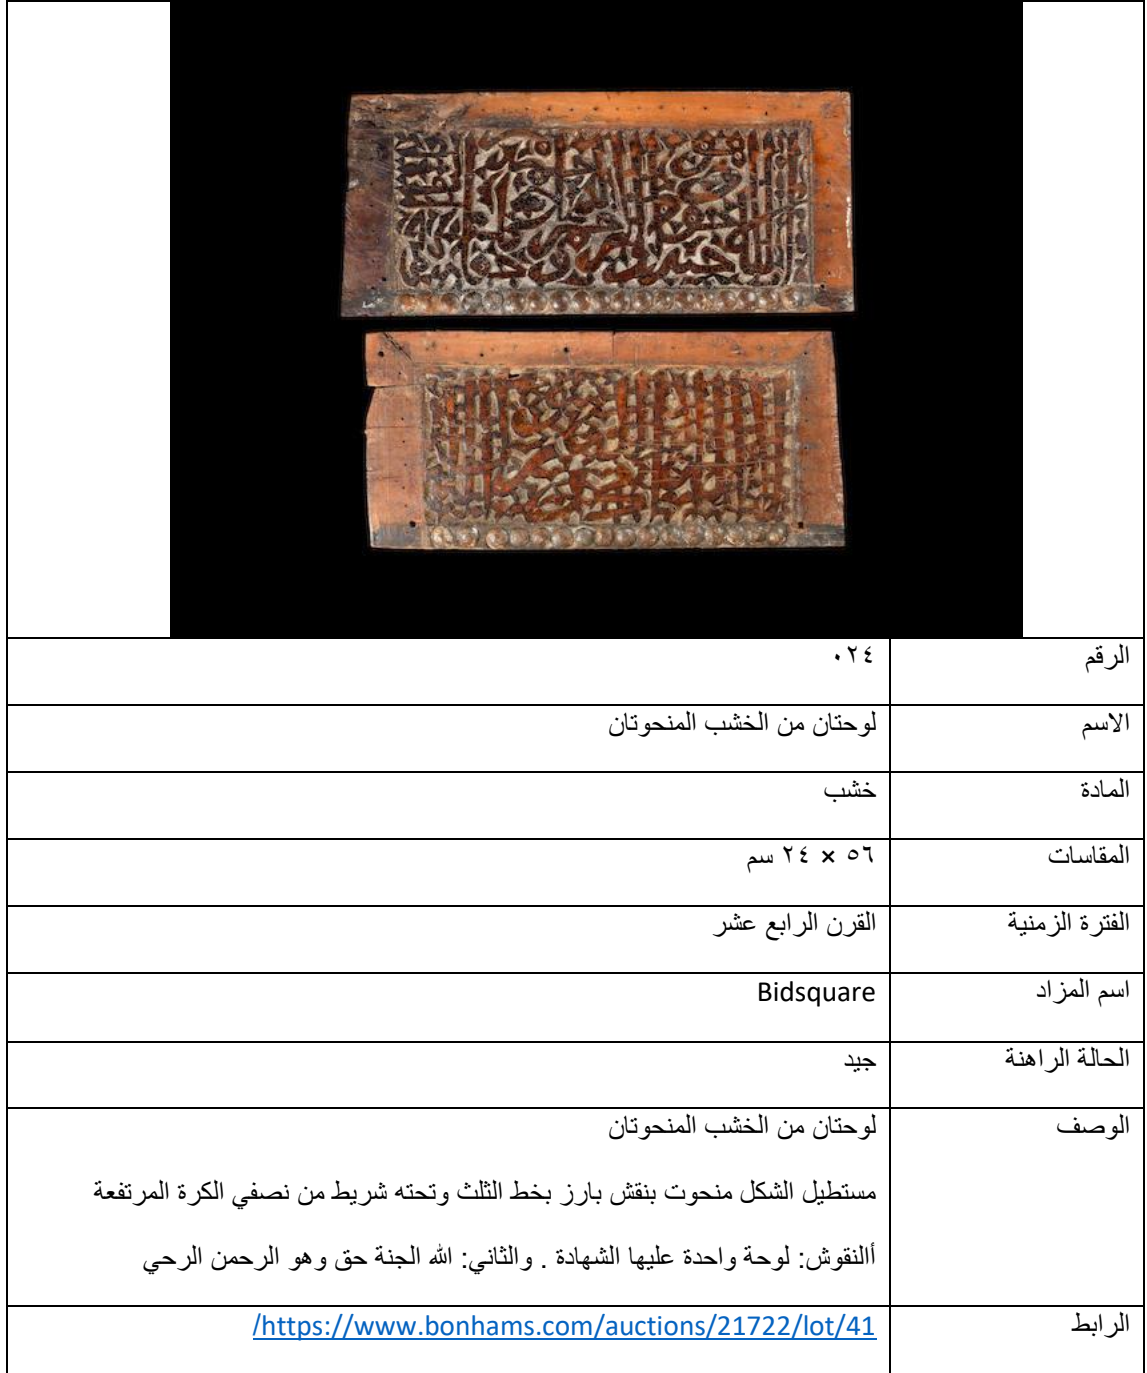 الرقم ٠٢٤
الاسم لوحتان من الخشب المنحوتان
المادة خشب
المقاسات ٥٦ × ٢٤ سم
الفترة الزمنية القرن الرابع عشر
اسم المزاد Bidsquare
الحالة الراهنة جيد
الوصف لوحتان من الخشب المنحوتان
مستطيل الشكل منحوت بنقش بارز بخط الثلث وتحته شريط من نصفي الكرة المرتفعة
أالنقوش: لوحة واحدة عليها الشهادة . والثاني: الله الجنة حق وهو الرحمن الرحي
الرابط https://www.bonhams.com/auctions/21722/lot/41/